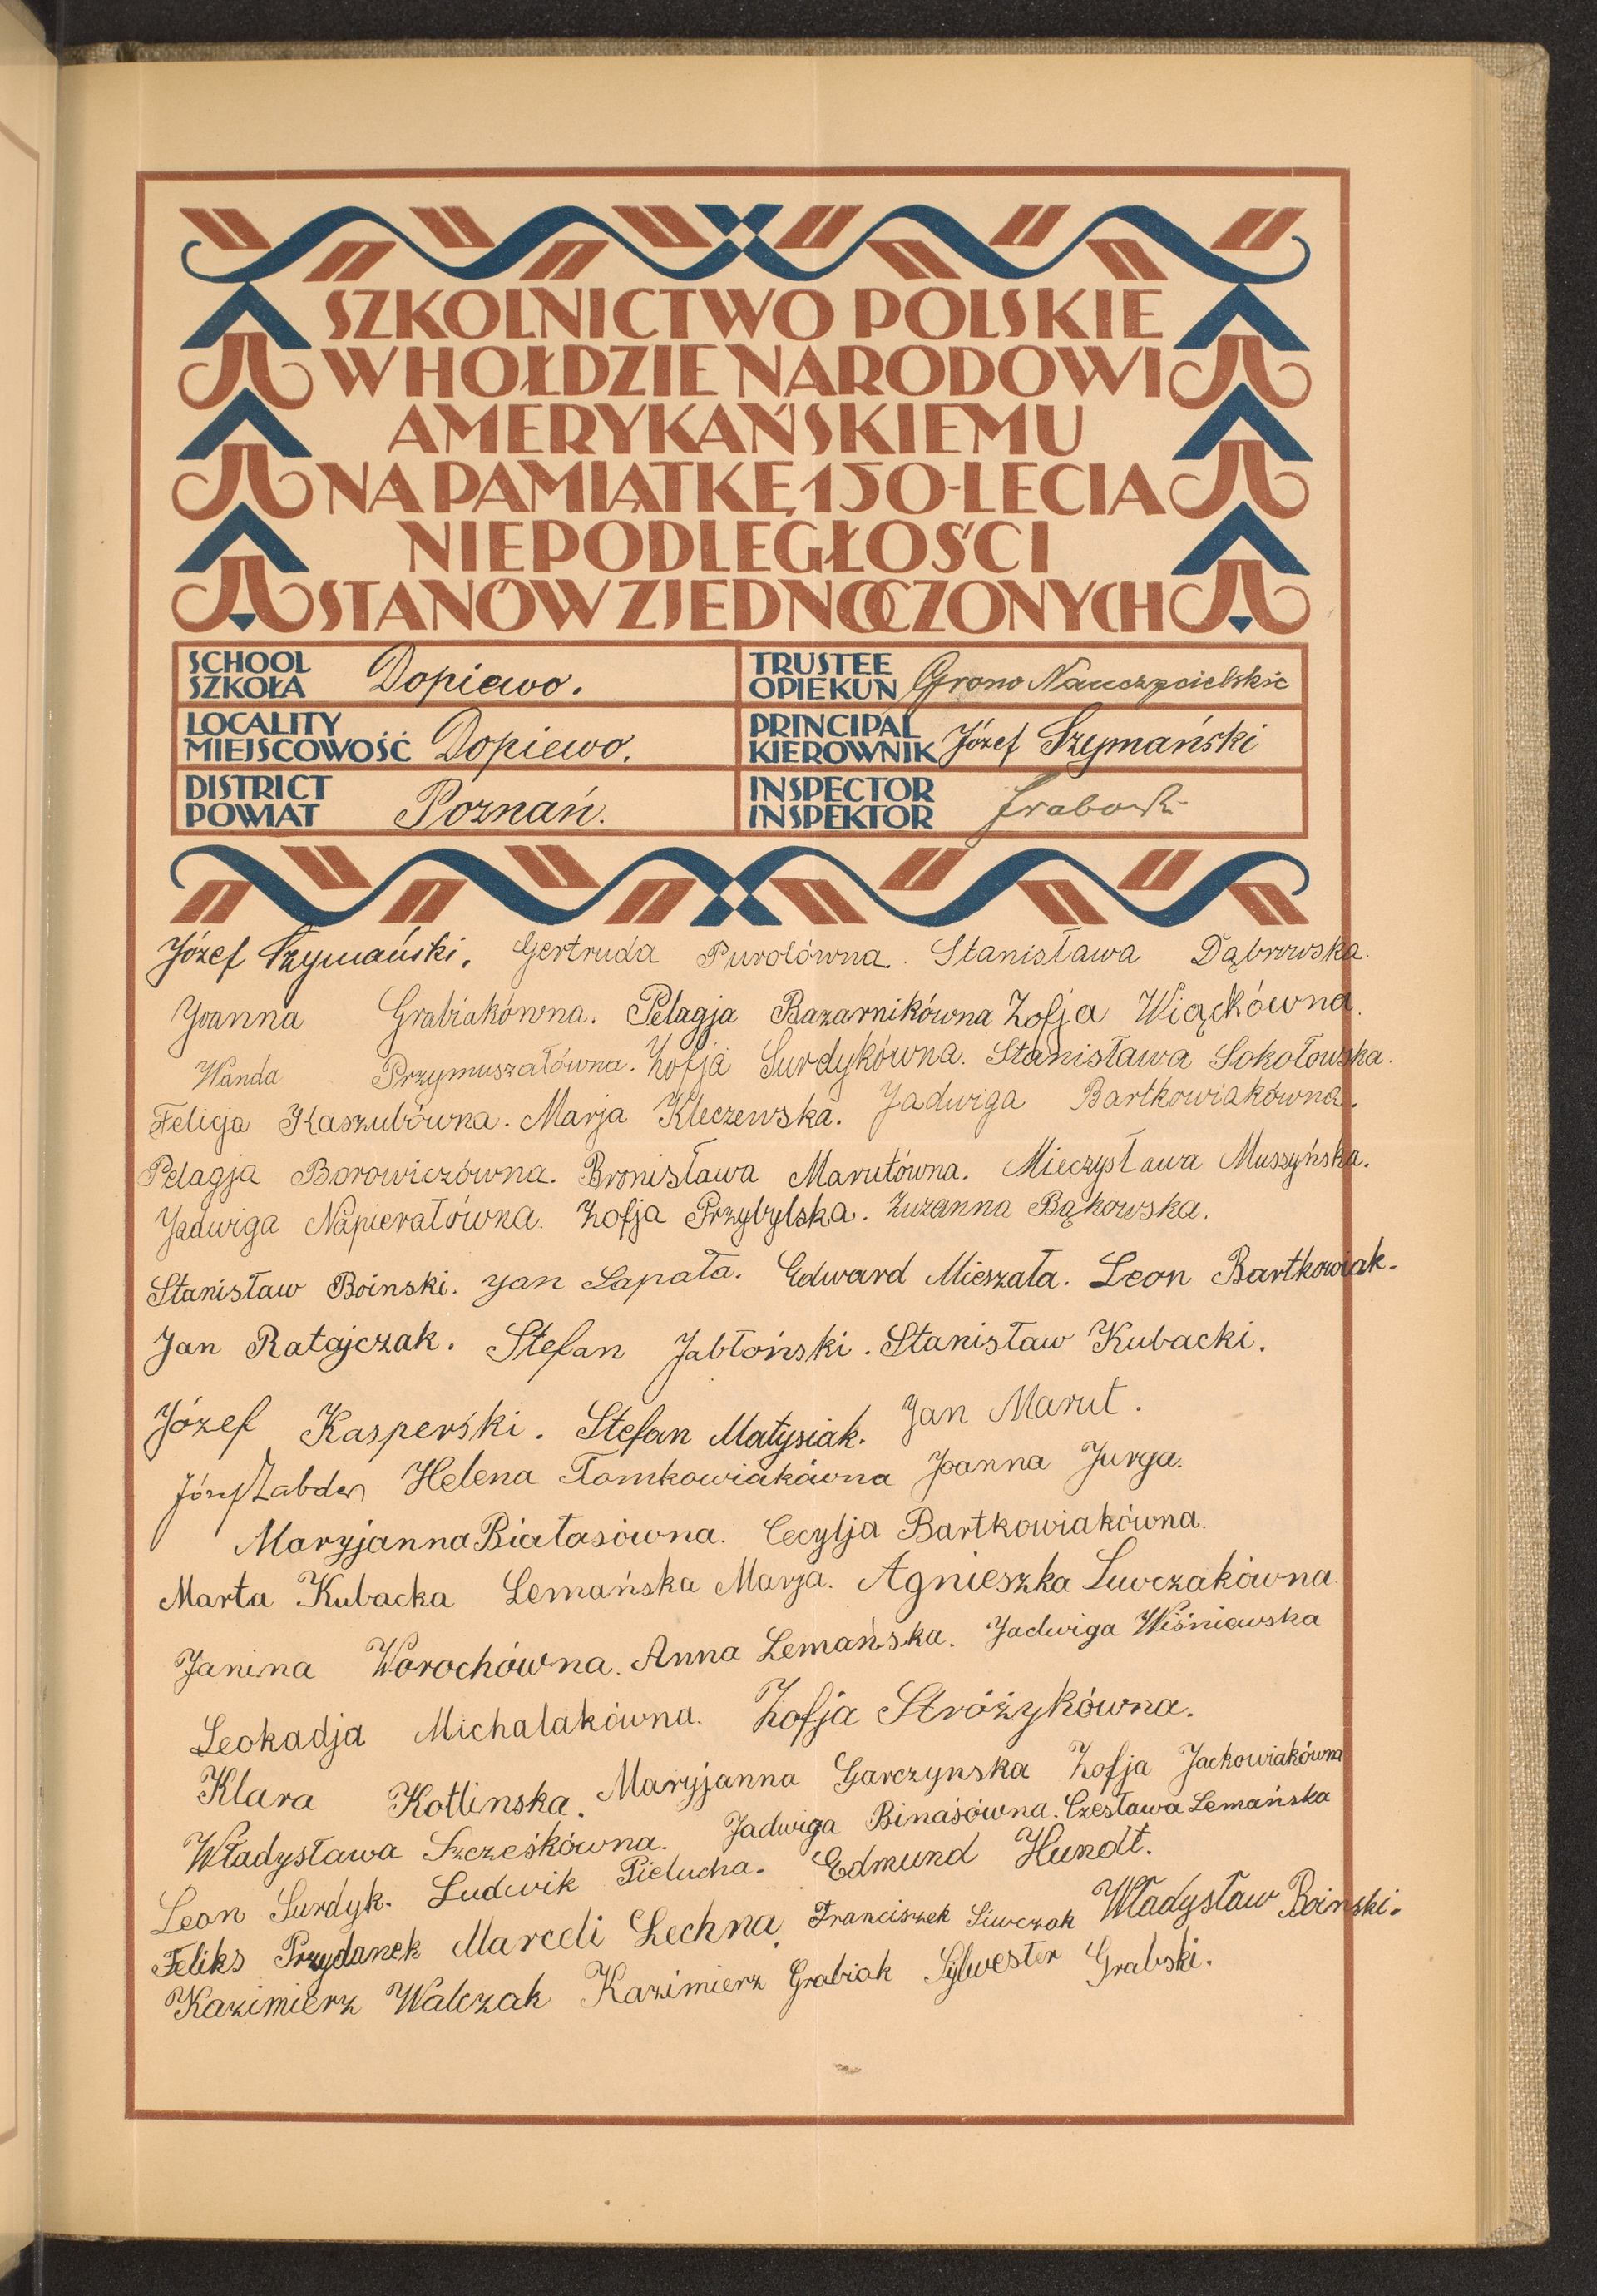 SZKOLNICTWO POLSKIE
W HOŁDZIE NARODOWI
AMERYKAŃSKIEMU
NA PAMIĄTKĘ 150-LECIA
NIEPODLEGŁOŚCI
STANÓW ZJEDNOCZONYCH
SCHOOL
SZKOŁA Dopiewo.
TRUSTEE
OPIEKUN Grono Nauczycielskie
LOCALITY
MIEJSCOWOŚĆ Dopiewo.
PRINCIPAL
KIEROWNIK Józef Szymański
DISTRICT
POWIAT Poznań.
INSPECTOR
INSPEKTOR
Józef Szymański. Gertruda Purolówna. Stanisława Dąbrowska.
Joanna Grabiakówna. Pelagja Bazarnikówna Zofja Wiąckówna.
Wanda Przymuszałówna. Zofja Surdykówna. Stanisława Sokołowska.
Felicja Kaszubówna. Marja Kleczewska. Jadwiga Bartkowiakówna.
Pelagja Borowiczówna. Bronisława Marutówna. Mieczysława Muszyńska.
Jadwiga Napierałówna. Zofja Przybylska. Zuzanna Bąkowska.
Stanisław Boinski. Jan Łapała. Edward Mieszała. Leon Bartkowiak.
Jan Ratajczak. Stefan Jabłoński. Stanisław Kubacki.
Józef Kasperski. Stefan Matysiak. Jan Marut.
Józef Helena Tomkowiakówna Joanna Jurga.
Maryjanna Białasówna. Cecylja Bartkowiakówna.
Marta Kubacka Lemańska Marja. Agnieszka Siwczakówna.
Janina Worochówna. Anna Lemańska. Jadwiga Wiśniewska
Leokadja Michalakówna. Zofja Stróżykówna.
Klara Kotlinska. Maryjanna Garczynska Zofja Jackowiakówna
Władysława Szcześkówna. Jadwiga Binaśówna. Czesława Lemańska
Leon Surdyk. Ludwik Pielucha. Edmund Hundt.
Feliks Przydanek Marceli Lechna. Franciszek Siwczak Władysław Boinski.
Kazimierz Walczak Kazimierz Grabiak Sylwester Grabski.